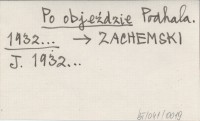 Po objeździe Podhala.
1932... → ZACHEMSKI
J. 1932...